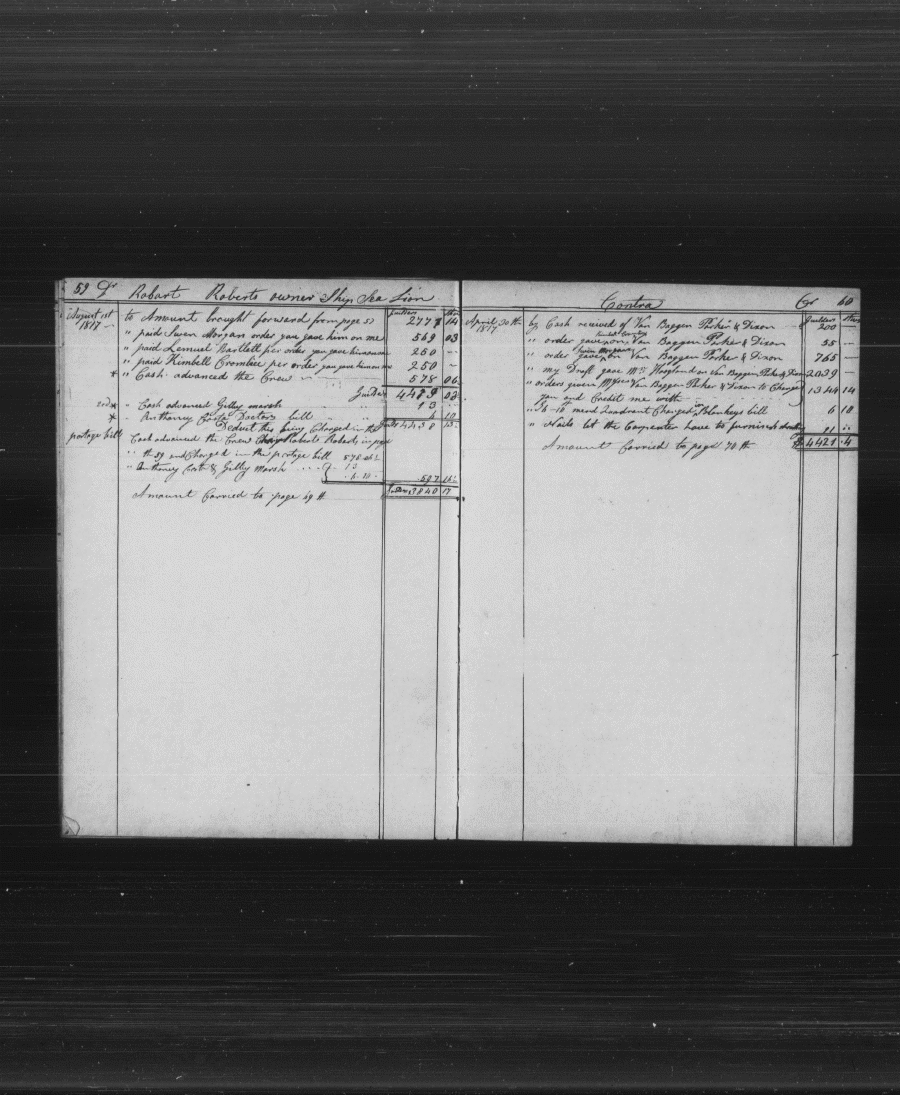 59 Dr Robart Roberts owner Ship Sea Lion
August 1st 1817 to Amount brought forward from page 57 Guilders 2777 14
" paid Swen Morgan order you gave him on me 569 03
" paid Lemuel Bartlett per order you gave him on me 250 —
" paid Kimbell Crombie per order you gave him on me 250 —
* " Cash advanced the Crew 578 06
Guilders 4419 03
2nd * " Cash advanced Gilly marsh 13
* " Anthoney Costs Doctors bill 6 10
Guilders 4438 13
Deduct this being Charged in the
portage bill Cash advanced the Crew Robarts Roberts in page
" th 59 and Charged in the portage bill 578
" Anthoney Cost & Gilly Marsh 13
6 10 597 16
Amount Carried to page 69 th Guilders 3840 17
Contra Cr 60
April 30 th 1817 by Cash received of Van Baggen Parker & Dixon Guilders 200 —
" order gave on Van Baggen Parker & Dixon 55 —
Swen Morgan
" order gave on Van Baggen Parker & Dixon 765 —
" my Draft gave Mr Hoogland on Van Baggen Parker & Dixon 2039 —
" orders given Van Baggen Parker & Dixon to Charge
you and Credit me with 1344 14
" Quadrant Charged in Blankeys bill 6 10
" Nails let the Carpenter have to furnish 11
4421 4
Amount Carried to page 70 th